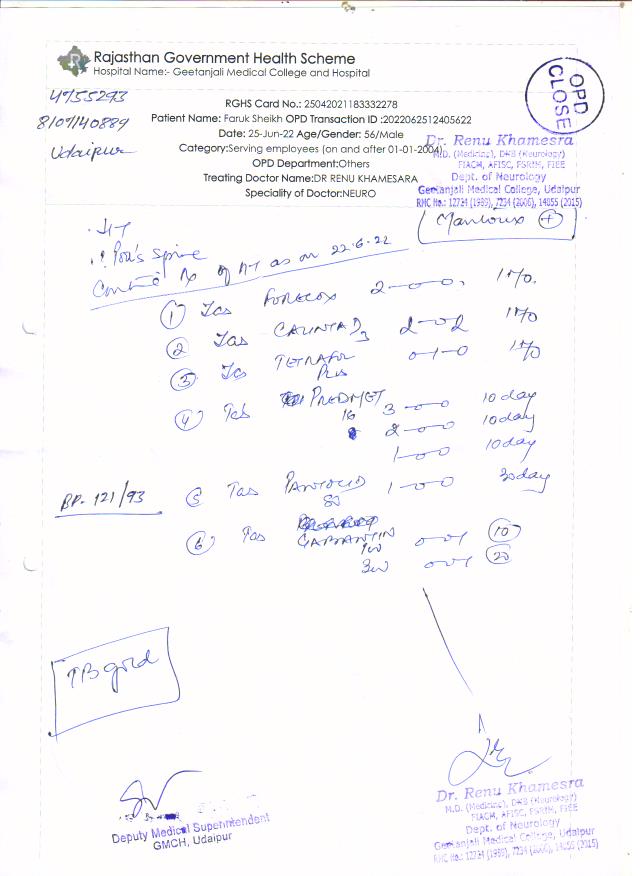 Rajasthan Government Health Scheme
Hospital Name:- Geetanjali Medical College and Hospital
4755293
8107140889
Udaipur
OPD
CLOSE
RGHS Card No.: 25042021183332278
Patient Name: Faruk Sheikh OPD Transaction ID :2022062512405622
Date: 25-Jun-22 Age/Gender: 56/Male
Category:Serving employees (on and after 01-01-2004)
OPD Department:Others
Treating Doctor Name:DR RENU KHAMESARA
Speciality of Doctor:NEURO
Dr. Renu Khamesra
M.D. (Medicine), DNB (Neurology)
FIACM, AFISC, FSRIM, FIEE
Dept. of Neurology
Geetanjali Medical College, Udaipur
RMC No.: 12734 (1989), 7234 (2006), 14855 (2015)
Mantoux +
Pott's Spine
as on 22.6.22
① Tab 2-0-0
② Tab 2-0-2
③ TETRAFOL 0-1-0
Plus
④ Tab PREDMET
16 3-0-0 10 day
2-0-0 10 day
1-0-0 10 day
BP- 121/93
⑤ Tab PANTOCID 1-0-0 30 day
⑥ Tab GABANTIN
100 0-0-1 ⑩
300 0-0-1 ⑳
TB gold
Deputy Medical Superintendent
GMCH, Udaipur
Dr. Renu Khamesra
M.D. (Medicine), DNB (Neurology)
FIACM, AFISC, FSRIM, FIEE
Dept. of Neurology
Geetanjali Medical College, Udaipur
RMC No.: 12734 (1989), 7234 (2006), 14855 (2015)